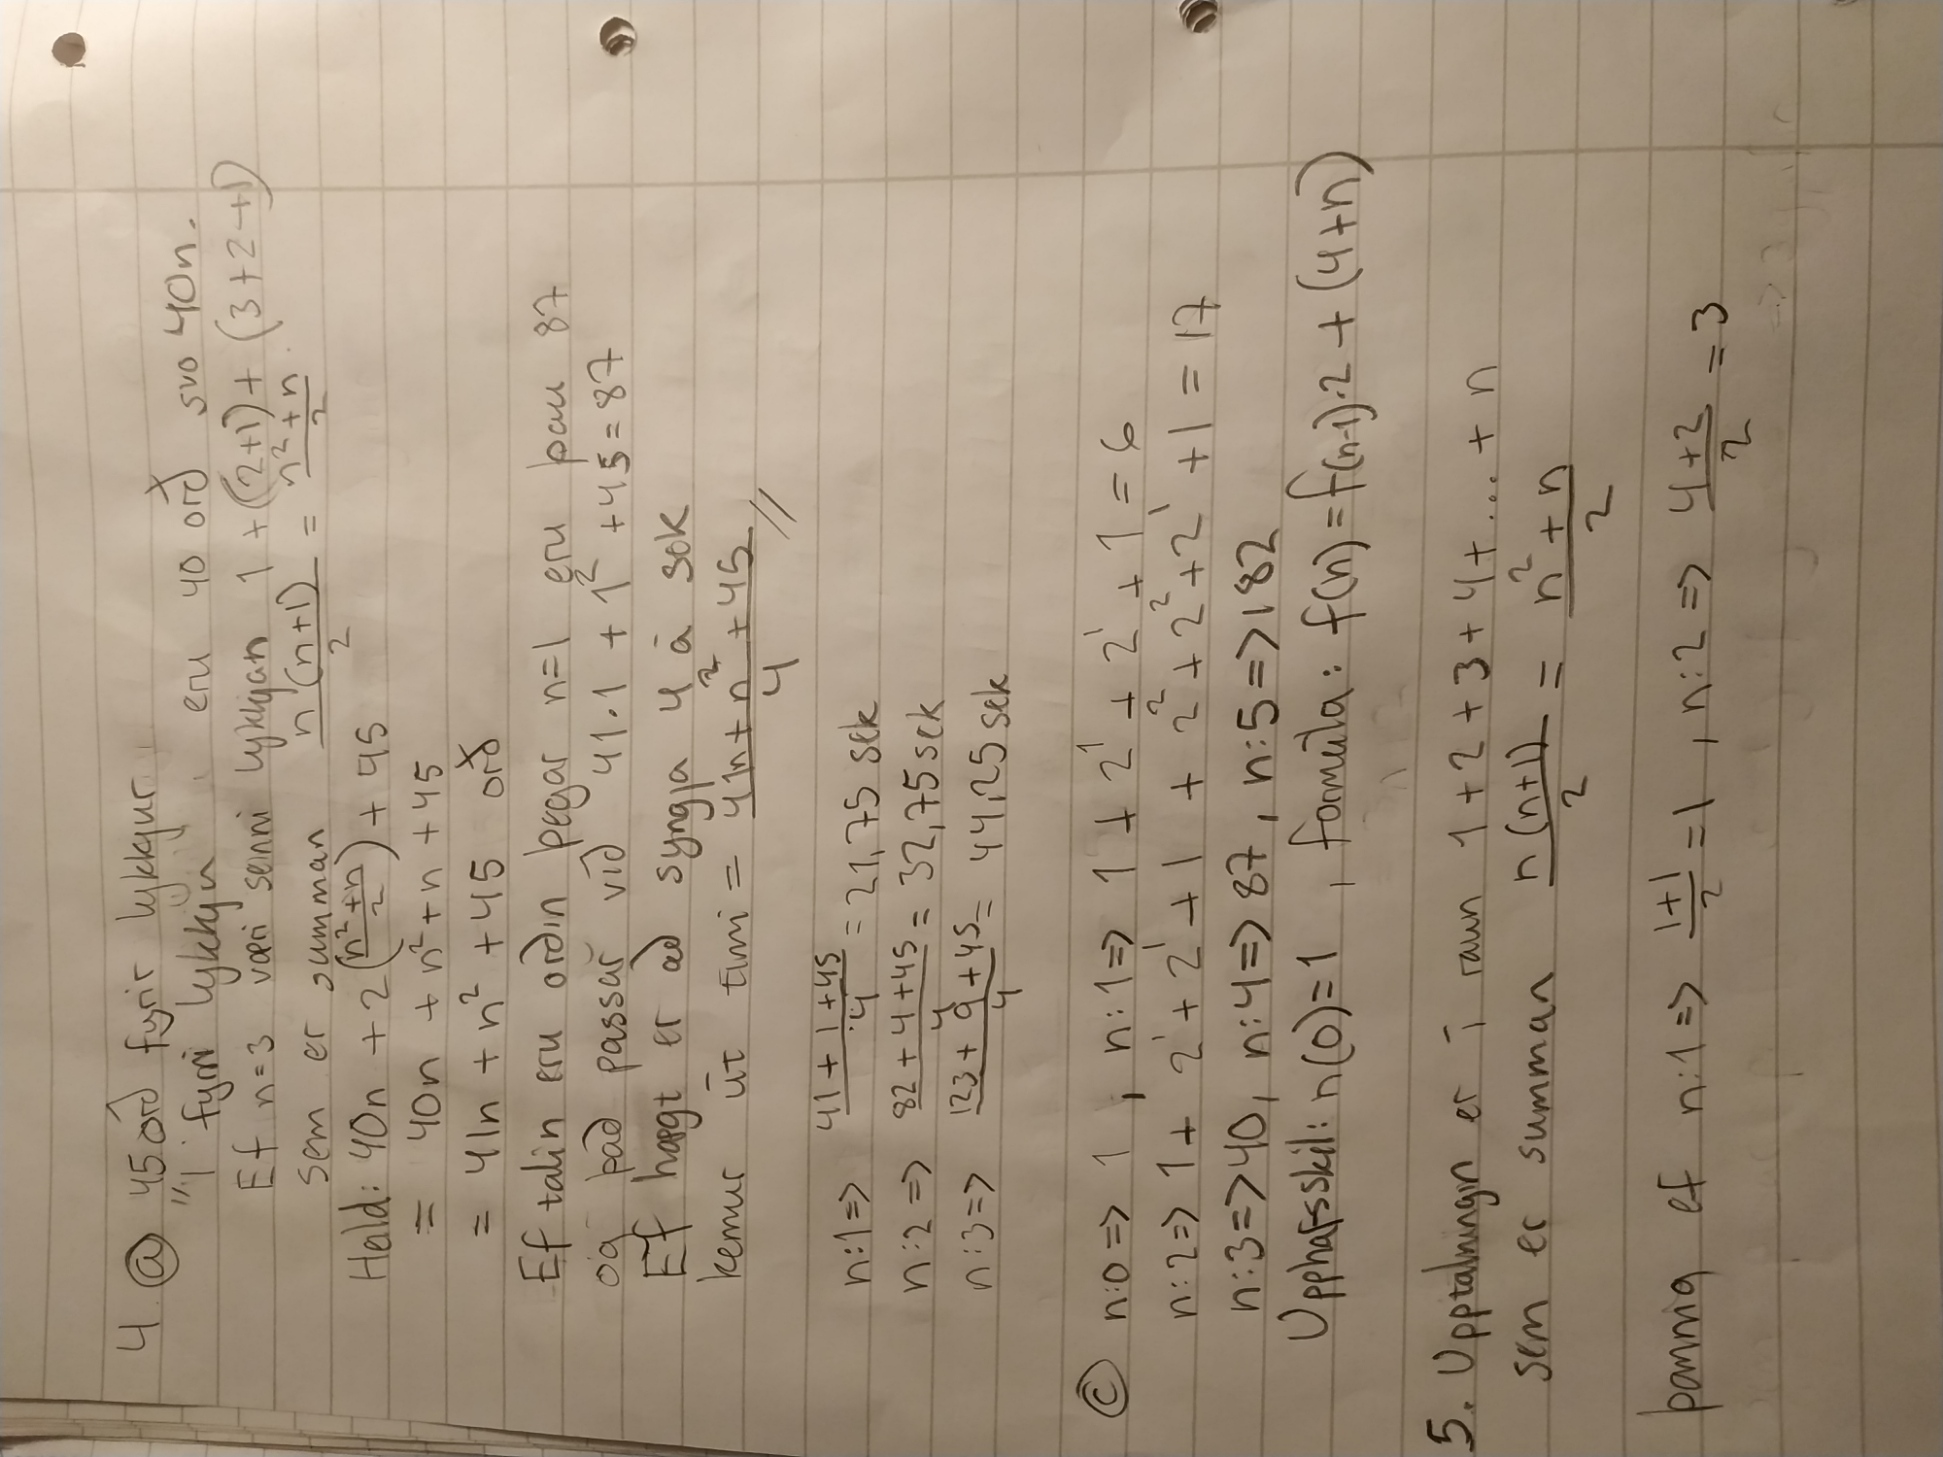 4. ⓐ 45 orð fyrir lykkjur
"Í fyrri lykkju eru 40 orð svo 40n.
Ef n=3 væri seinni lykkjan 1 + (2+1) + (3+2+1)
sem er summan n(n+1)/2 = n²+n/2.
Heild: 40n + 2(n²+n/2) + 45
= 40n + n²+n + 45
= 41n + n² + 45 orð
Ef talin eru orðin þegar n=1 eru þau 87
og það passar við 41·1 + 1² + 45 = 87
Ef hægt er að syngja 4 á sek
kemur út tími = 41n + n² + 45/4 //
n:1 => 41 + 1 + 45/4 = 21,75 sek
n:2 => 82 + 4 + 45/4 = 32,75 sek
n:3 => 123 + 9 + 45/4 = 44,25 sek
ⓒ n:0 => 1 , n:1 => 1 + 2¹ + 2¹ + 1 = 6
n:2 => 1 + 2¹ + 2¹ + 1 + 2² + 2² + 2¹ + 1 = 17
n:3 => 40, n:4 => 87, n:5 => 182
Upphafsskil: n(0)=1 , formúla: f(n) = f(n-1)·2 + (4+n)
5. Upptalningin er í raun 1 + 2 + 3 + 4 + ... + n
sem er summan n(n+1)/2 = n² + n/2
þannig ef n:1 => 1+1/2 = 1 , n:2 => 4+2/2 = 3